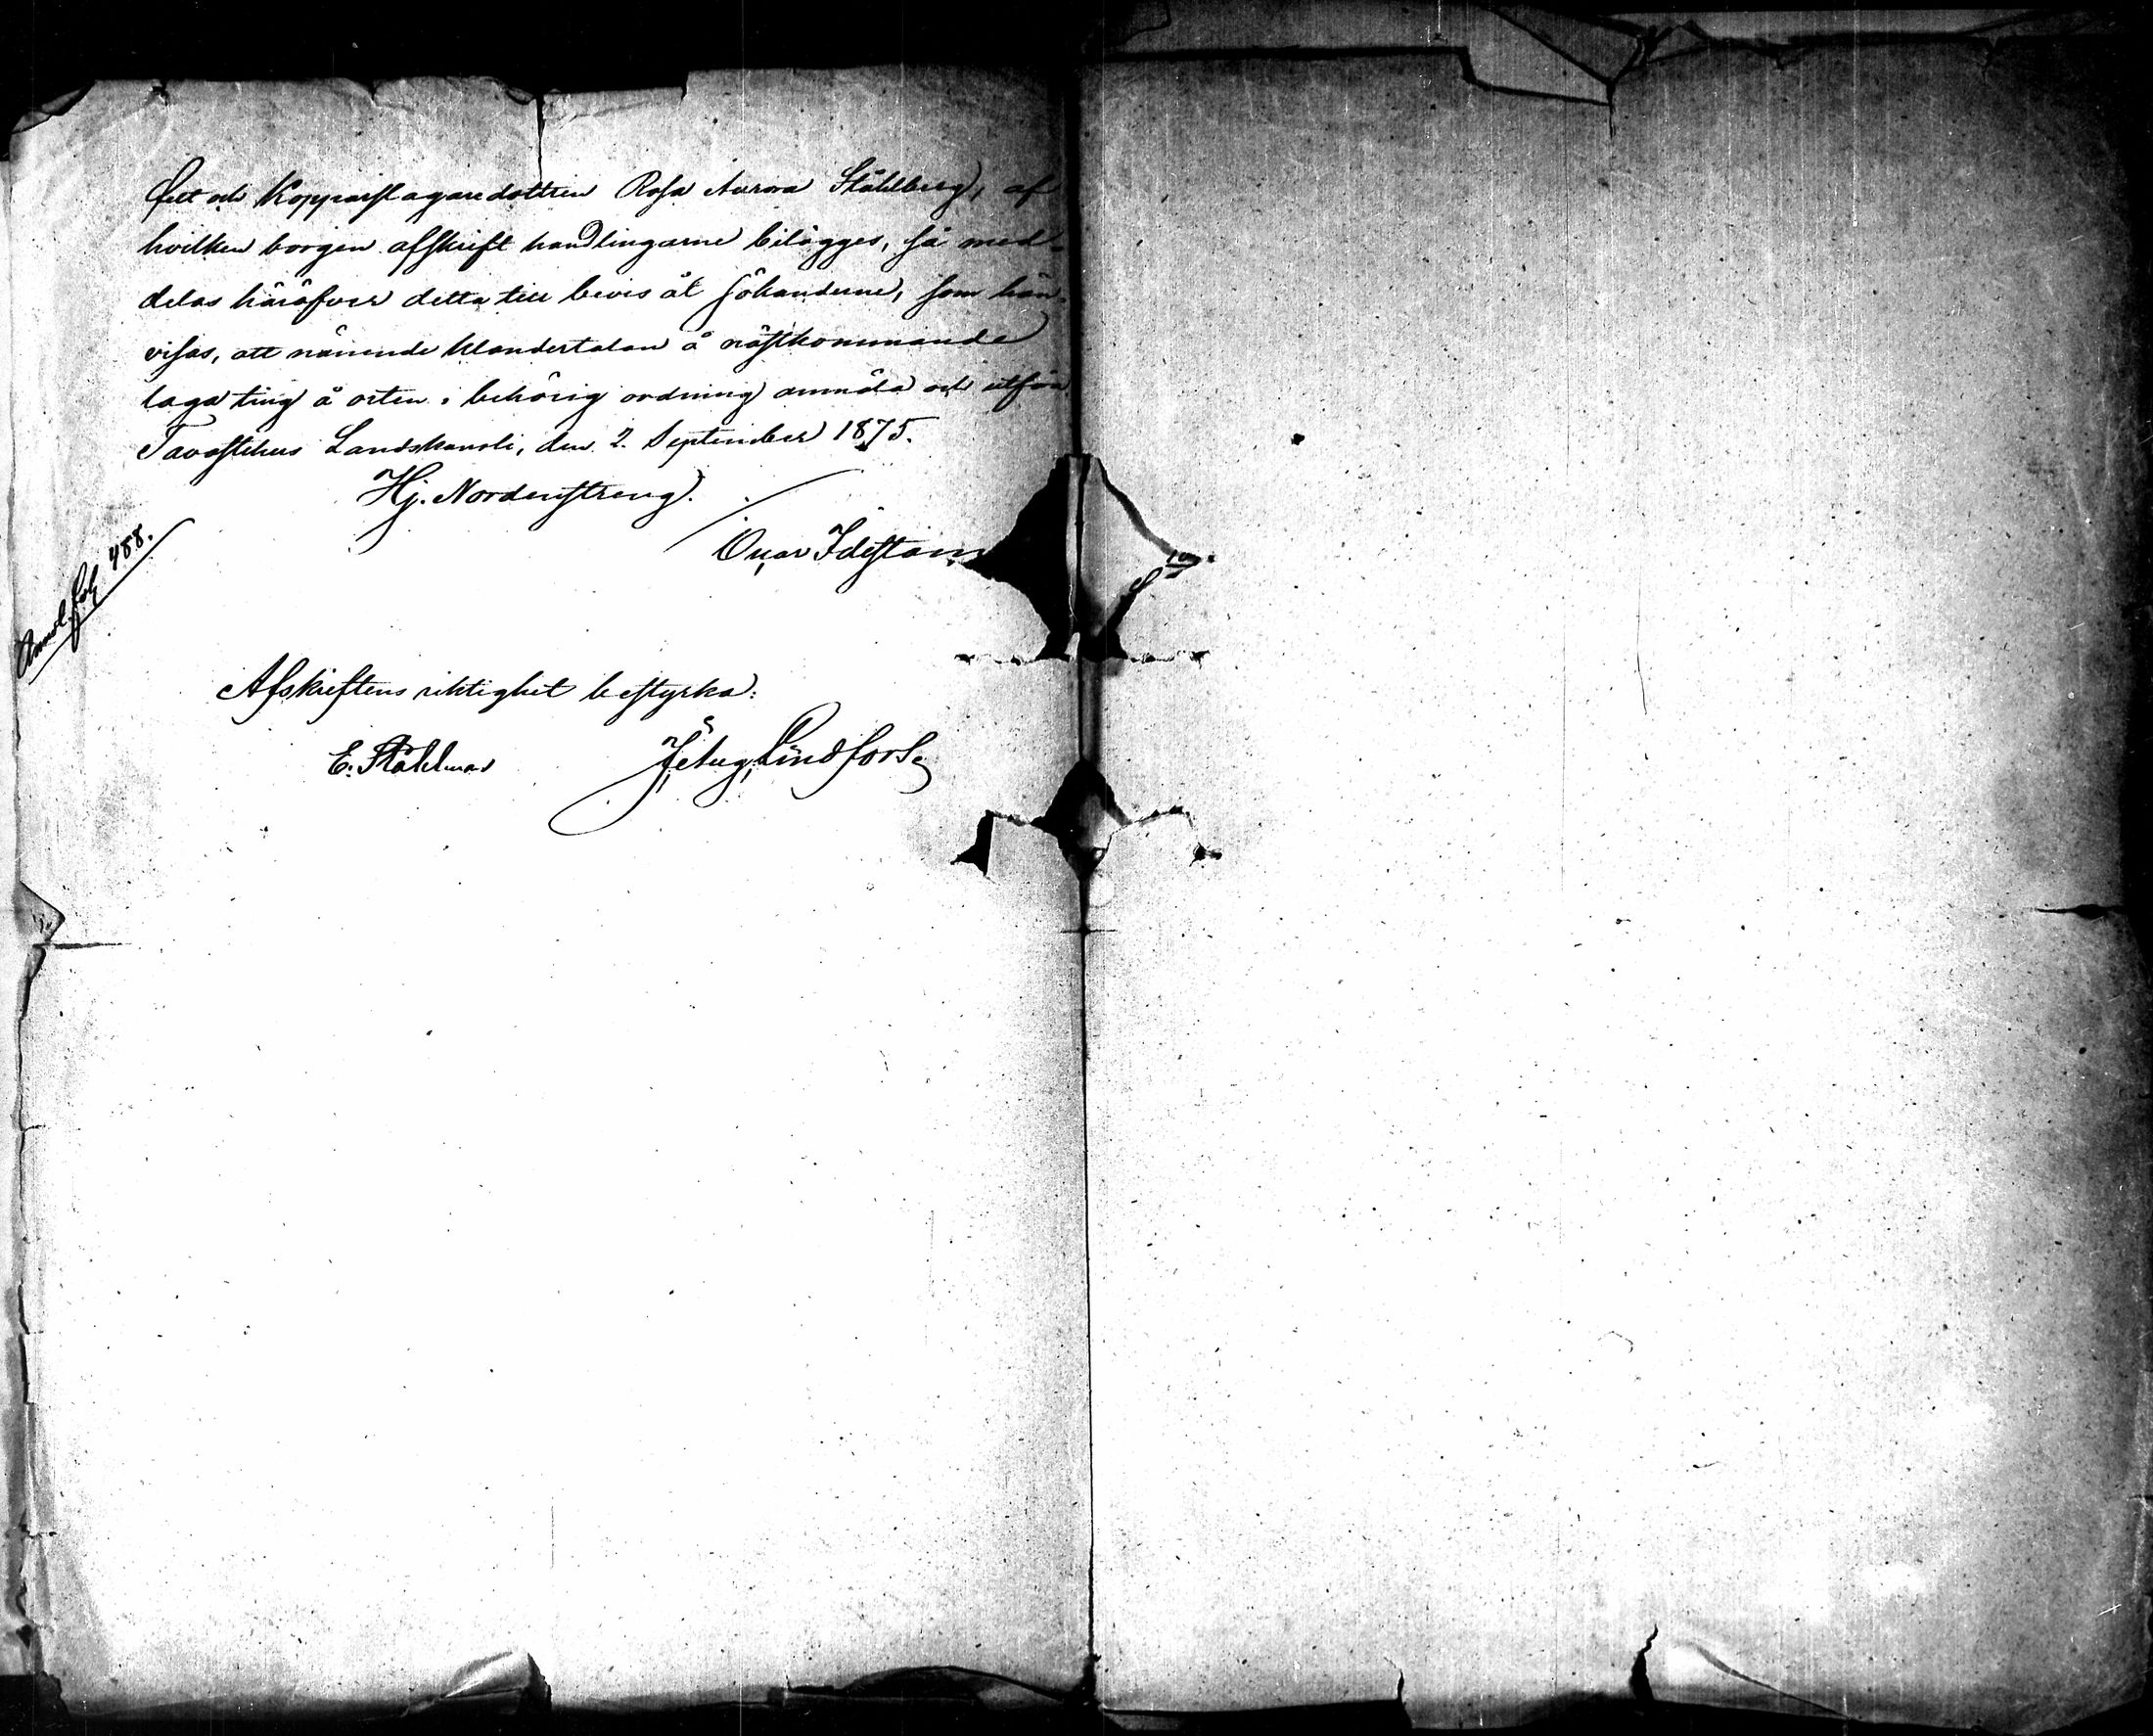 felt och Kopparslagaredottren Rosa Aurora Ståhlberg, af
hvilken borgen afskrift handlingarne bilägges, så med-
delas häröfver detta till bevis åt sökanderne, som hän-
visas, att nämnde klandertalan å nästkommande
laga ting å orten i behörig ordning anmäla och utföra
Tavastehus Landskansli, den 2 September 1875.
Hj. Nordenstreng.
Onar Idestam
Anmäl. fol. 488.
Afskriftens riktighet bestyrka:
E. Ståhlman Lindfors